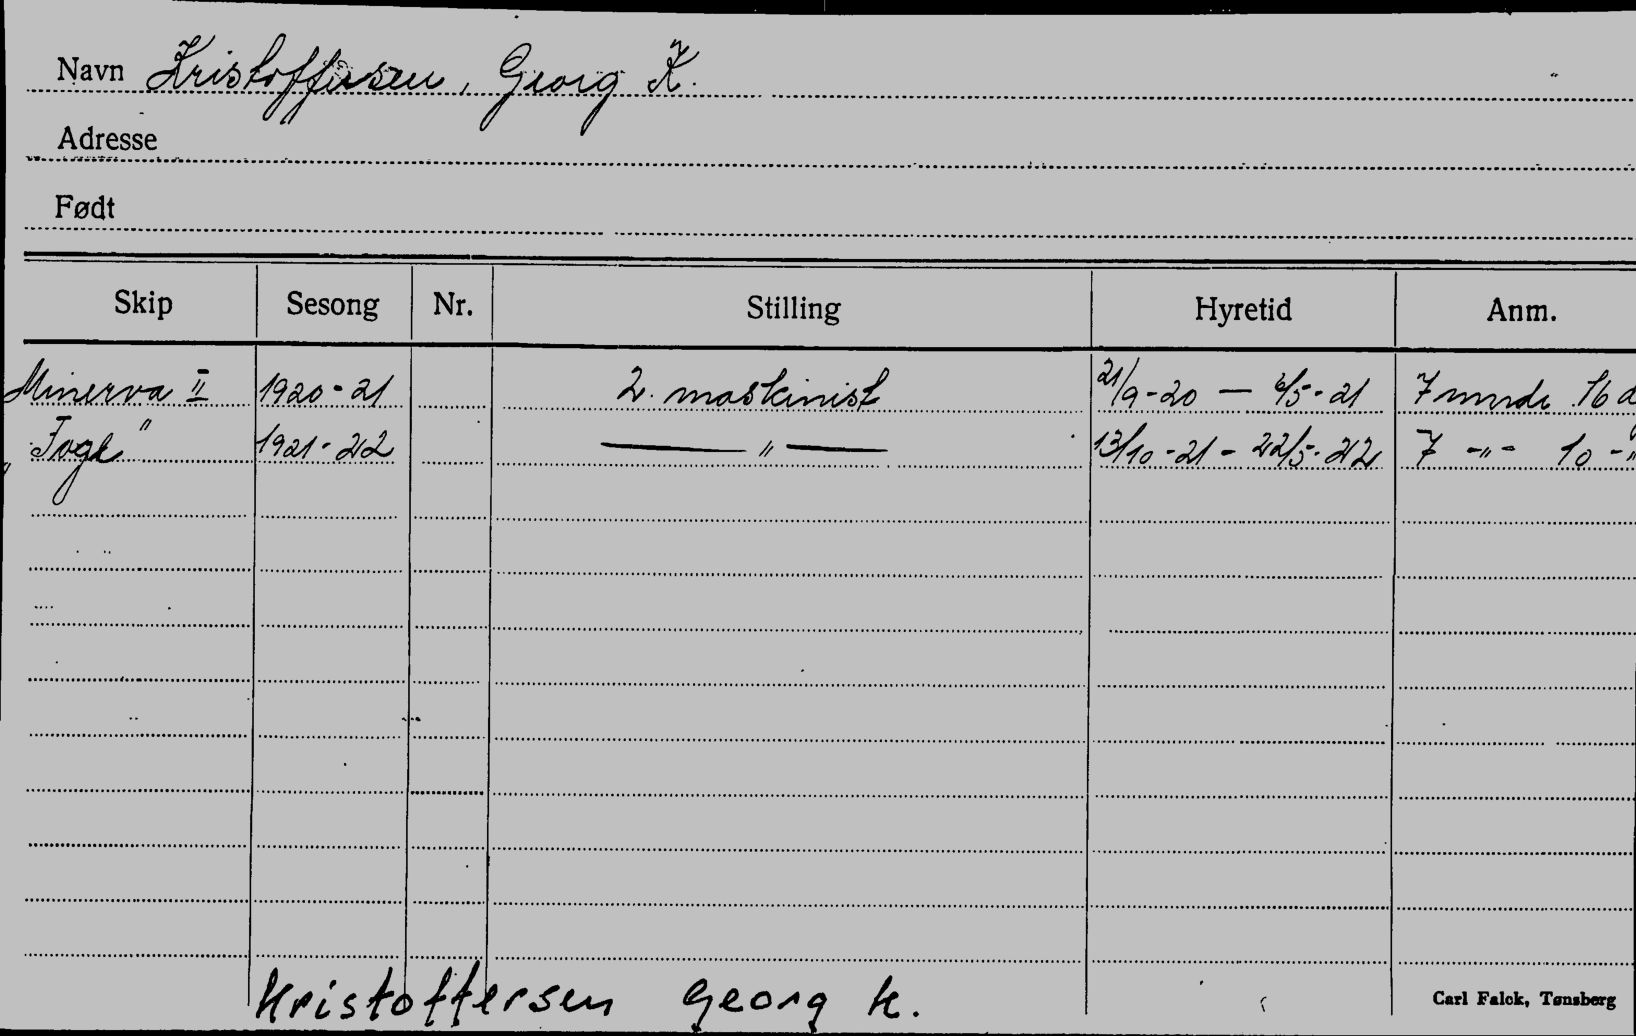 Navn Kristoffersen, Georg K.
Adresse
Født
Skip Sesong Nr. Stilling Hyretid Anm.
Minerva II 1920-21 2. maskinist 21/9-20 — 6/5-21 7 mndr 16 d
"Foge" 1921-22 — " — 13/10-21 - 22/5-22 7 -"- 10 -"
Kristoffersen Georg K.
Carl Falck, Tønsberg